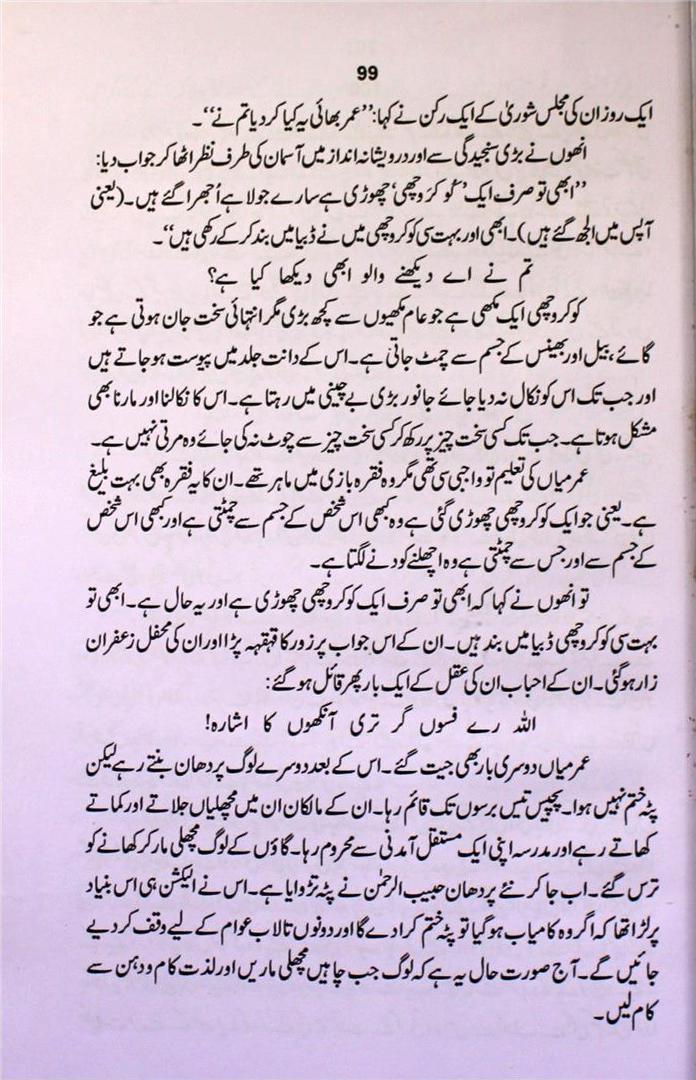 99
ایک روز ان کی مجلس شوریٰ کے ایک رکن نے کہا: ’’عمر بھائی یہ کیا کر دیا تم نے‘‘۔
انھوں نے بڑی سنجیدگی سے اور درویشانہ انداز میں آسمان کی طرف نظر اٹھا کر جواب دیا:
’’ابھی تو صرف ایک ’کُوکَروچھی‘ چھوڑی ہے سارے جولاہے اُجھرا گئے ہیں۔ (یعنی
آپس میں الجھ گئے ہیں)۔ ابھی اور بہت سی کوکروچھی میں نے ڈبیا میں بند کر کے رکھی ہیں‘‘۔
تم نے اے دیکھنے والو ابھی دیکھا کیا ہے؟
کوکروچھی ایک مکھی ہے جو عام مکھیوں سے کچھ بڑی مگر انتہائی سخت جان ہوتی ہے جو
گائے، بیل اور بھینس کے جسم سے چمٹ جاتی ہے۔ اس کے دانت جلد میں پیوست ہو جاتے ہیں
اور جب تک اس کو نکال نہ دیا جائے جانور بڑی بے چینی میں رہتا ہے۔ اس کا نکالنا اور مارنا بھی
مشکل ہوتا ہے۔ جب تک کسی سخت چیز پر رکھ کر کسی سخت چیز سے چوٹ نہ کی جائے وہ مرتی نہیں ہے۔
عمر میاں کی تعلیم تو واجبی سی تھی مگر وہ فقرہ بازی میں ماہر تھے۔ ان کا یہ فقرہ بھی بہت بلیغ
ہے۔ یعنی جو ایک کوکروچھی چھوڑی گئی ہے وہ کبھی اس شخص کے جسم سے چمٹتی ہے اور کبھی اس شخص
کے جسم سے اور جس سے چمٹتی ہے وہ اچھلنے کودنے لگتا ہے۔
تو انھوں نے کہا کہ ابھی تو صرف ایک کوکروچھی چھوڑی ہے اور یہ حال ہے۔ ابھی تو
بہت سی کوکروچھی ڈبیا میں بند ہیں۔ ان کے اس جواب پر زور کا قہقہہ پڑا اور ان کی محفل زعفران
زار ہو گئی۔ ان کے احباب ان کی عقل کے ایک بار پھر قائل ہو گئے:
اللہ رے فسوں گر تری آنکھوں کا اشارہ!
عمر میاں دوسری بار بھی جیت گئے۔ اس کے بعد دوسرے لوگ پردھان بنتے رہے لیکن
پٹہ ختم نہیں ہوا۔ پچیس تیس برسوں تک قائم رہا۔ ان کے مالکان ان میں مچھلیاں جلاتے اور کماتے
کھاتے رہے اور مدرسہ اپنی ایک مستقل آمدنی سے محروم رہا۔ گاؤں کے لوگ مچھلی مار کر کھانے کو
ترس گئے۔ اب جا کر نئے پردھان حبیب الرحمٰن نے پٹہ تڑوایا ہے۔ اس نے الیکشن ہی اس بنیاد
پر لڑا تھا کہ اگر وہ کامیاب ہو گیا تو پٹہ ختم کرا دے گا اور دونوں تالاب عوام کے لیے وقف کر دیے
جائیں گے۔ آج صورت حال یہ ہے کہ لوگ جب چاہیں مچھلی ماریں اور لذت کام و دہن سے
کام لیں۔